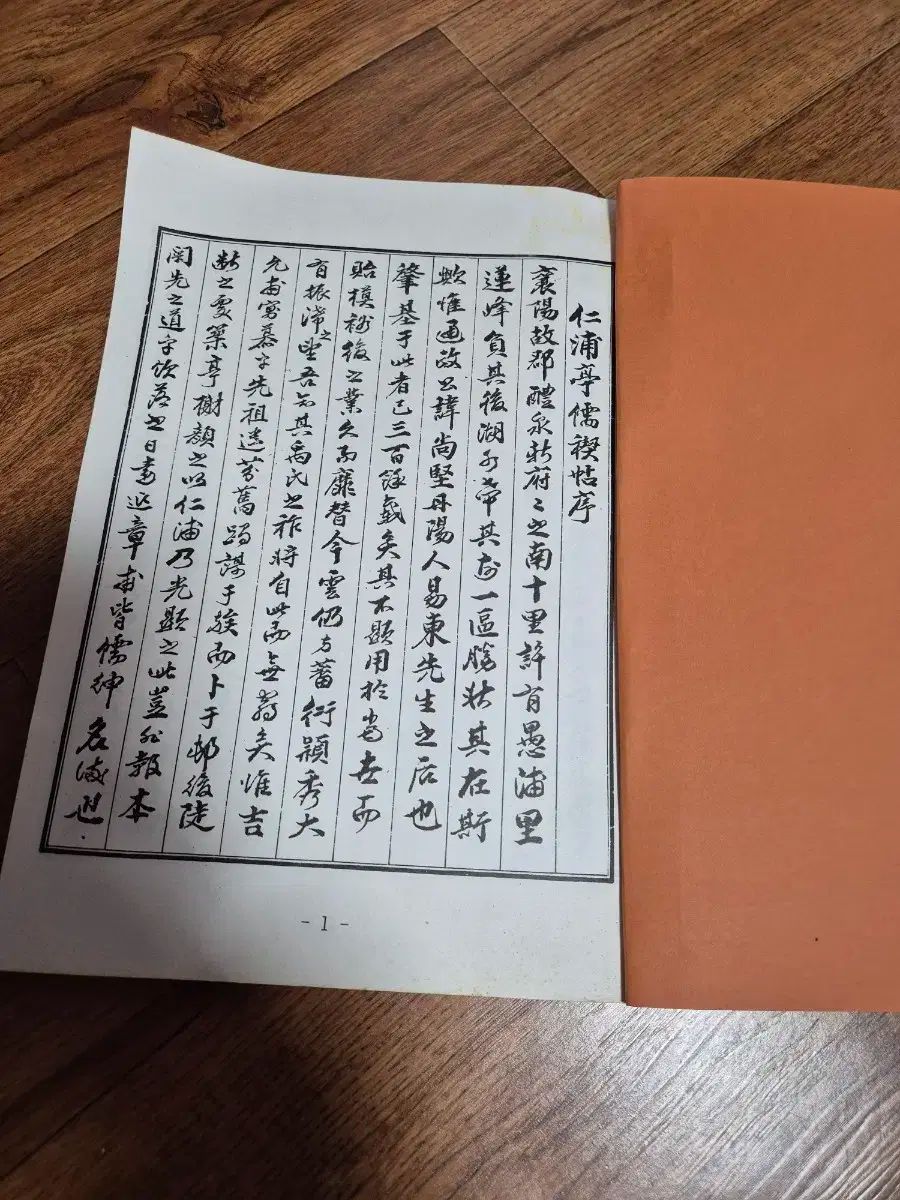 仁浦亭儒禊帖序
襄陽故郡醴泉新府之南十里許有愚浦里
蓮峰負其後湖水帶其前一區勝狀其在斯
歟惟通政公諱尚堅丹陽人易東先生之后也
肇基于此者已三百餘載矣其不顯用於當世而
貽模裕後之業久而靡替今雲仍方蕃衍穎秀大
有振滯之望吾知其禹氏之祚將自此而無替矣惟吉
允甫寓慕乎先祖遺芬舊躅謀于族而卜于邨後陡
斷之處築亭榭顏之以仁浦乃光顯之此豈非報本
闡先之道乎飲落之日書
章甫皆儒紳名
- 1 -